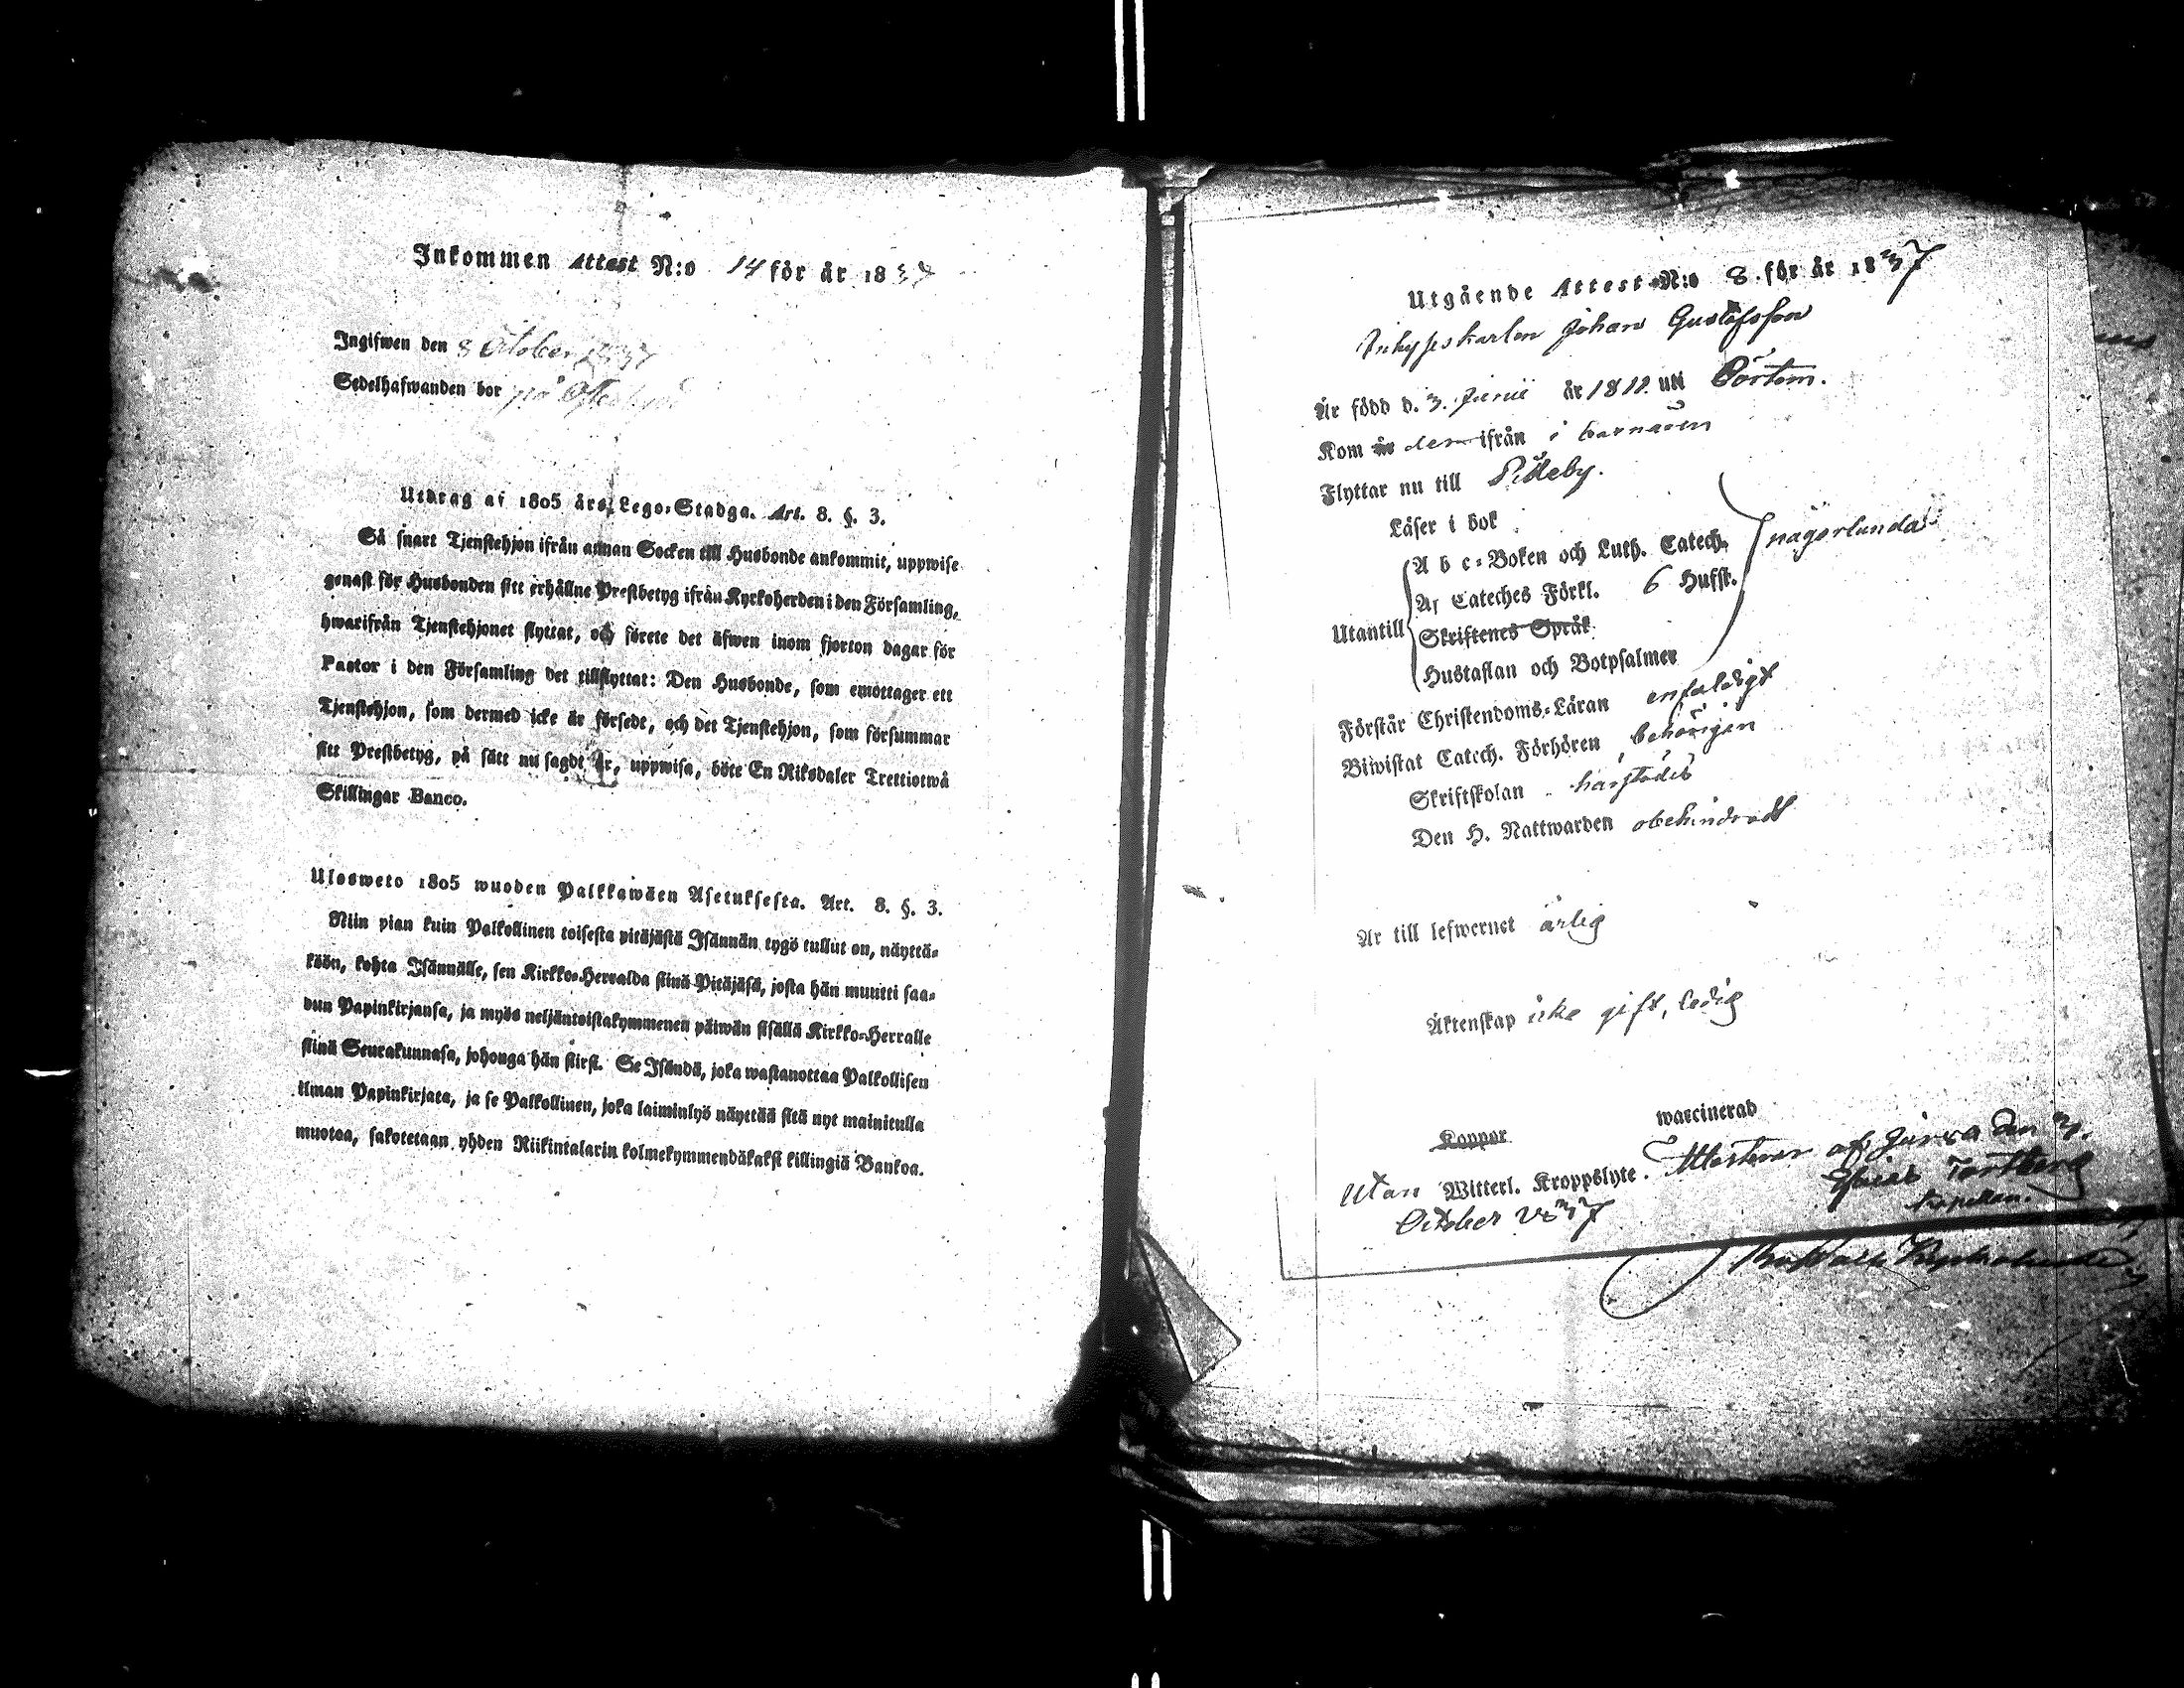 Inkommen Attest N:o 14 för år 1837
Ingifwen den 8 October 1837
Sedelhafwanden bor på
Utdrag af 1805 års Lego-Stadga. Art. 8. §. 3.
Så snart Tjenstehjon ifrån annan Socken till Husbonde ankommit, uppwise
genast för Husbonden sitt erhållne Prestbetyg ifrån Kyrkoherden i den Församling,
hwarifrån Tjenstehjonet flyttat, och förete det äfwen inom fjorton dagar för
Pastor i den Församling det tillflyttat: Den Husbonde, som emottager ett
Tjenstehjon, som dermed icke är försedt, och det Tjenstehjon, som försummar
sitt Prestbetyg, på sätt nu sagdt är, uppwisa, böte En Riksdaler Trettiotwå
Skillingar Banco.
Ulosweto 1805 wuoden Palkkawäen Asetuksesta. Art. 8. §. 3.
Niin pian kuin Palkollinen toisesta pitäjästä Isännän tygö tullut on, näyttä-
köön, kohta Isännälle, sen Kirkko-Herralda siinä Pitäjäsä, josta hän muutti saa-
dun Papinkirjansa, ja myös neljäntoistakymmenen päiwän sisällä Kirkko-Herralle
siinä Seurakunnasa, johonga hän siirst. Se Isändä, joka wastanottaa Palkollisen
ilman Papinkirjata, ja se Palkollinen, joka laiminlyö näyttää sitä nyt mainitulla
muotoa, sakotetaan yhden Riikintalarin kolmekymmendäkaksi killingiä Bankoa.
Utgående Attest N:o 8. för år 1837
Inhyseskarlen Johan Gustafsson
Är född d. 3. Junii år 1812. uti Pörtom.
Kom in der ifrån i barnaåren
Flyttar nu till Pileby.
Läser i bok
A b c-Boken och Luth. Catech. någorlunda
Af Cateches Förkl. 6 Hufst.
Utantill Skriftenes Språk
Hustaflan och Botpsalmer
Förstår Christendoms-Läran enfaldigt
Biwistat Catech. Förhören behörigen
Skriftskolan härstädes
Den H. Nattwarden obehindradt
Är till lefwernet ärlig
Äktenskap icke gift, ledig
waccinerad
Koppor
Utan Witterl. Kroppslyte. Attesterar af Jurva den 3.
October 1837
Kapellan.